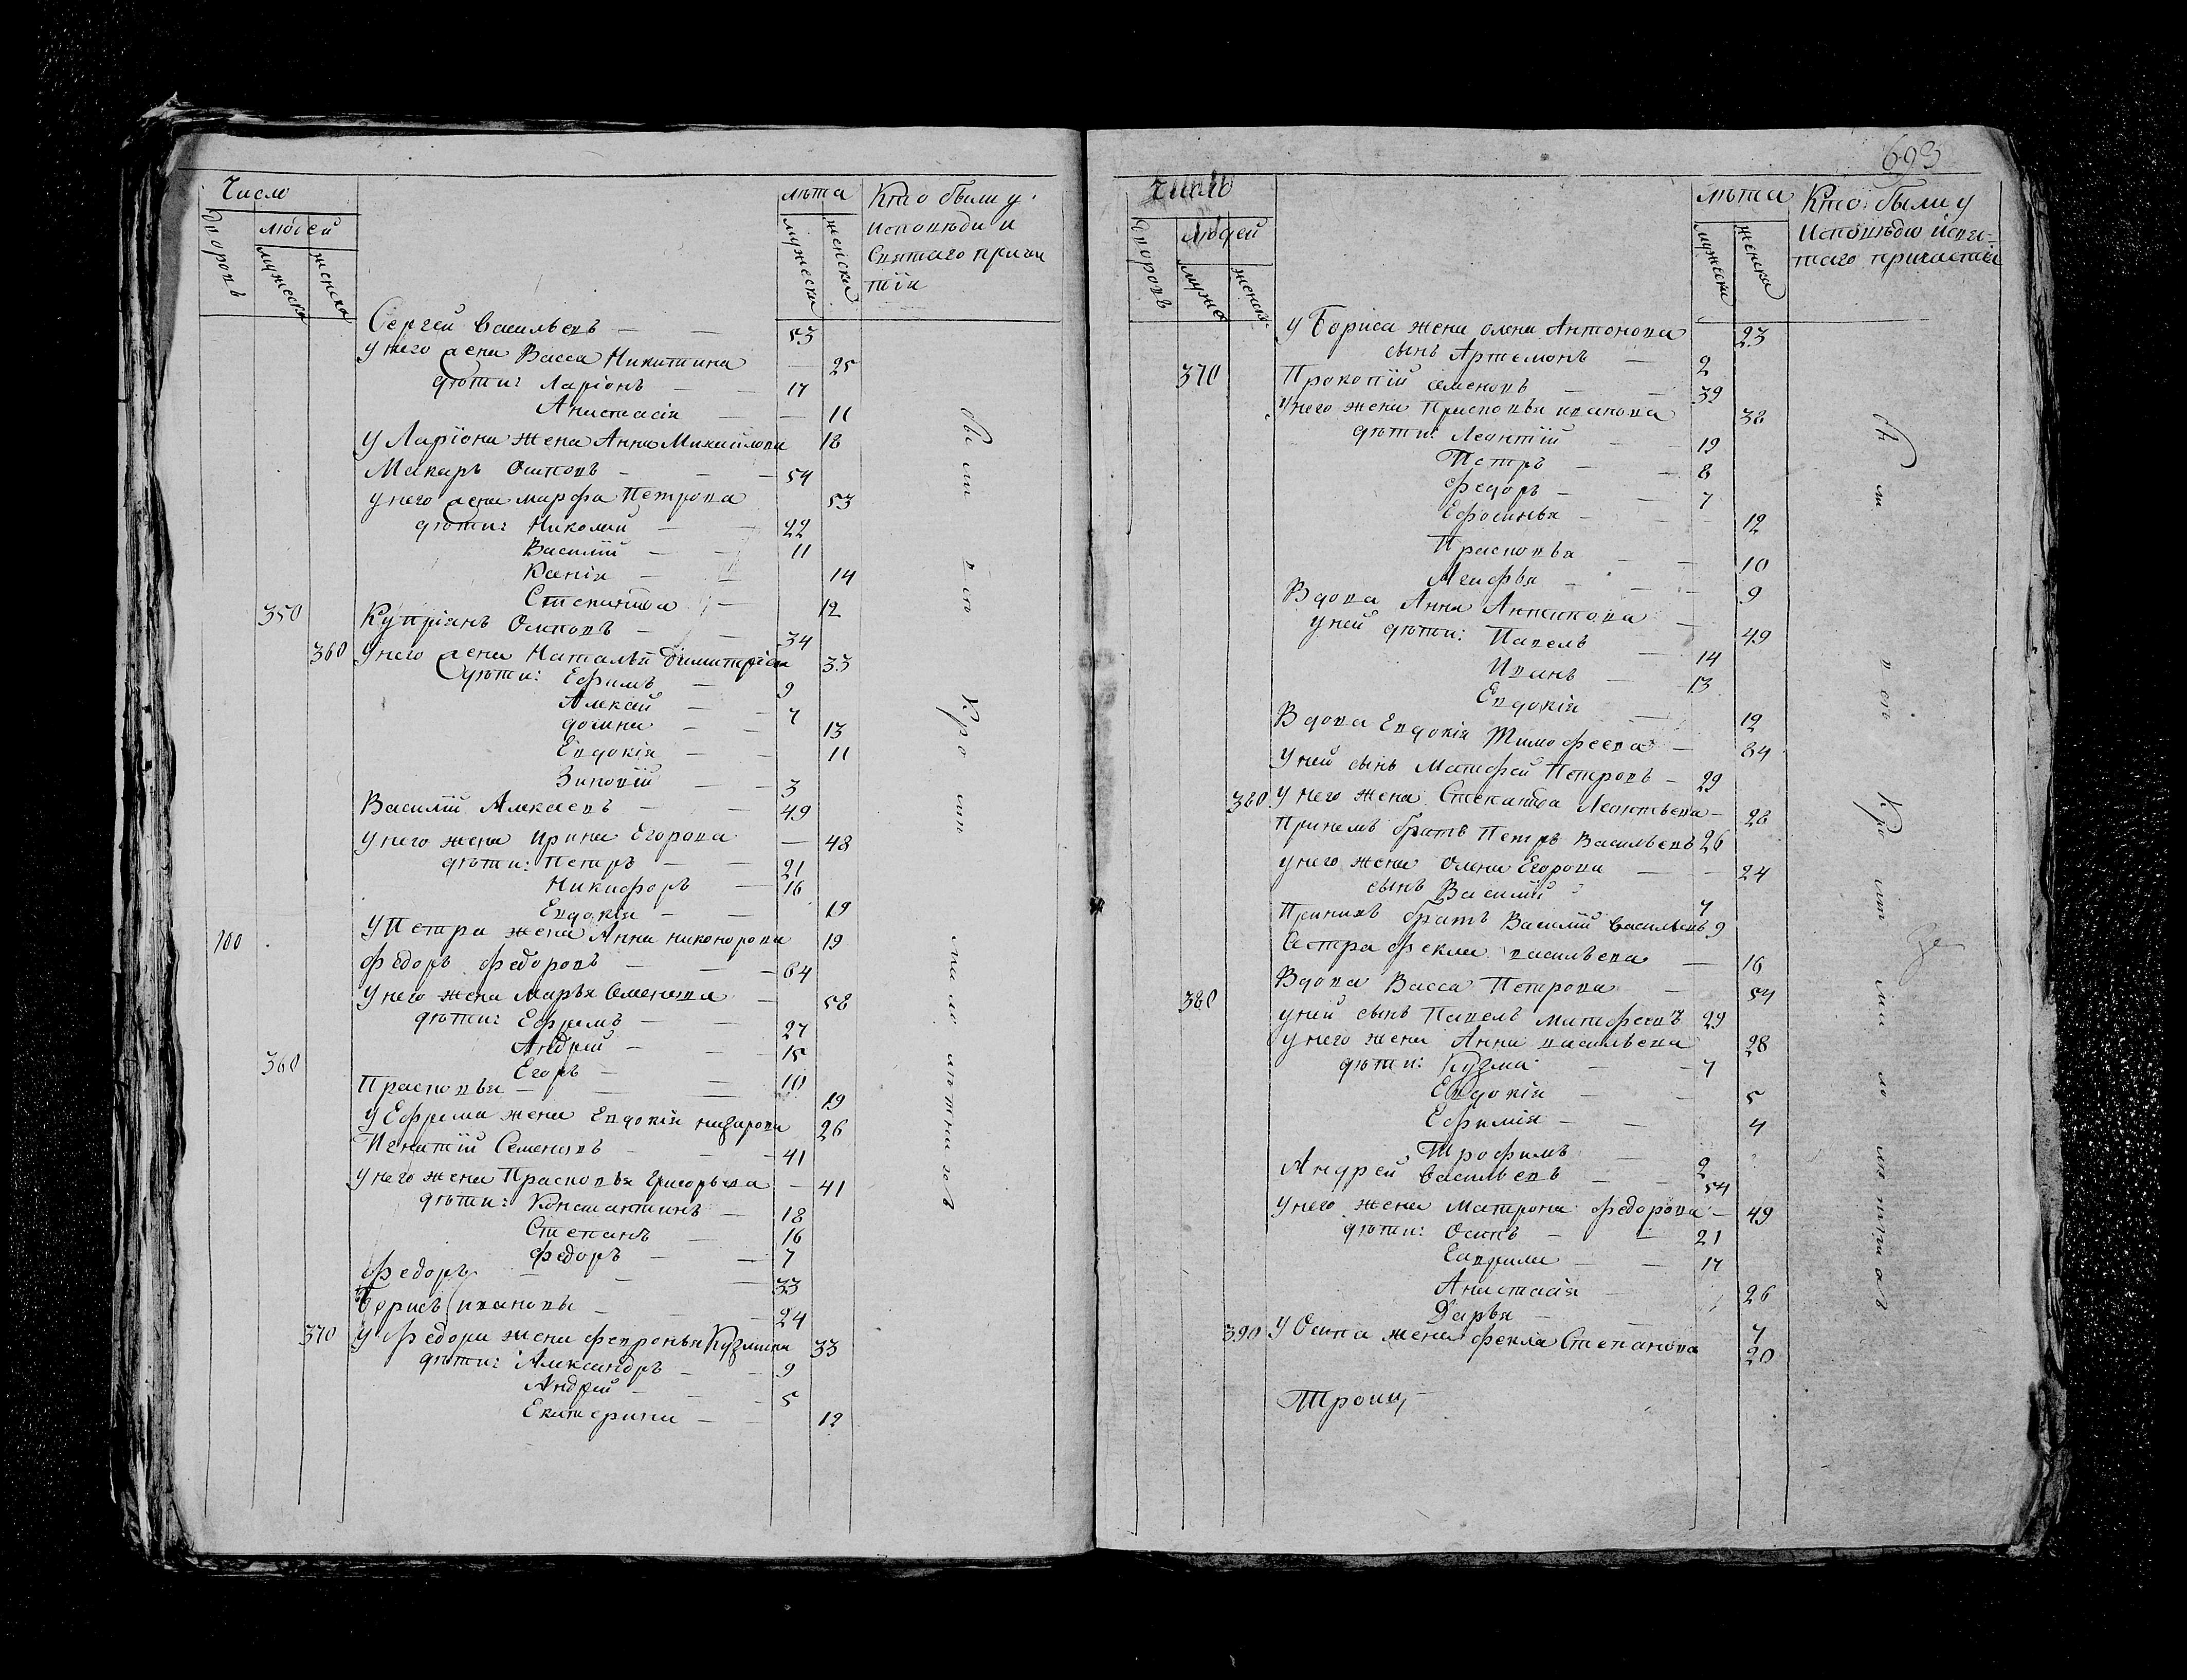 Число
Дворовъ
людей
мужеска
женска
лѣта
мужеска
женска
Кто были у
исповѣди и
Святаго прича
тїи
Сергей Васильевъ — — 53
у него жена Васса Никитина — 25
дѣти: Ларїонъ — — 17
Анастасїя — — 11
у Ларїона жена Анна Михайлова 18
Макаръ Осиповъ — — 54
у него жена марфа Петрова 53
дѣти: Николай — — 22
Василїй — — 11
Ксенїя — — 14
Степанида — 12
350 Купрїянъ Осиповъ — — 34
360 у него жена Наталья Димитрїева 33
дѣти: Ефимъ — 9
Алексѣй — — 7
домна — — 13
Евдокїя — — 11
Зиновїй — — 3
Василїй Алексеевъ — — 49
у него жена Ирина Егорова — 48
дѣти: Петръ — — 21
Никифоръ — 16
Евдокїя — — 19
100 у Петра жена Анна никонорова 19
Федоръ федоровъ — — 64
у него жена Марья Семенова — 58
дѣти: Ефремъ — — 27
Андрей — — 15
360 Егоръ — — 10
Прасковья — — 19
у Ефрема жена Евдокїя назарова 26
Игнатїй Семеновъ — — 41
у него жена Прасковья григорьева — 41
дѣти: Константинъ — 18
Степанъ — 16
федоръ — — 7
Федоръ — — 33
Борисъ ивановы — — 24
370 у Федора жена февронья Кузмина 33
дѣти: Александръ — — 9
Андрей — — 5
Екатерина — — 12
693
Число
Дворовъ
людей
муже
женска
лѣта
мужеска
женска
Кто были у
исповѣди и свя-
таго причастїи
у Бориса жена олена Антонова 23
сынъ Артемонъ — 2
370 Прокопїй семеновъ — — 39
у него жена Прасковья иванова 38
дѣти: Леонтїй — — 19
Петръ — — 8
федоръ — — 7
Ефросинья — — 12
Прасковья — — 10
Агафья — — 9
Вдова Анна Антипова — 49
у ней дѣти: Павелъ — 14
Иванъ — 13
Евдокїя — 12
Вдова Евдокїя Тимофеева — 84
у ней сынъ Матфей Петровъ — 29
380 у него жена Степанида Леонтьева — 28
Прїемъ братъ Петръ Васильевъ 26
у него жена олена Егорова — 24
сынъ Василїй 7
братъ Василїй васильевъ 9
Сестра фекла васильева — 16
380 Вдова Васса Петрова — 54
у ней сынъ Павелъ матфеевъ 29
у него жена Анна васильева 28
дѣти: Кузма — 7
Евдокїя — — 5
Ефимїя — — 4
Трофимъ — 2
Андрей васильевъ — — 54
у него жена Матрона федорова — 49
дѣти: Осипъ — — 21
Гаврила — — 17
Анастасїя — 26
Дарья — 7
390 у Осипа жена фекла Степанова 20
Троиц